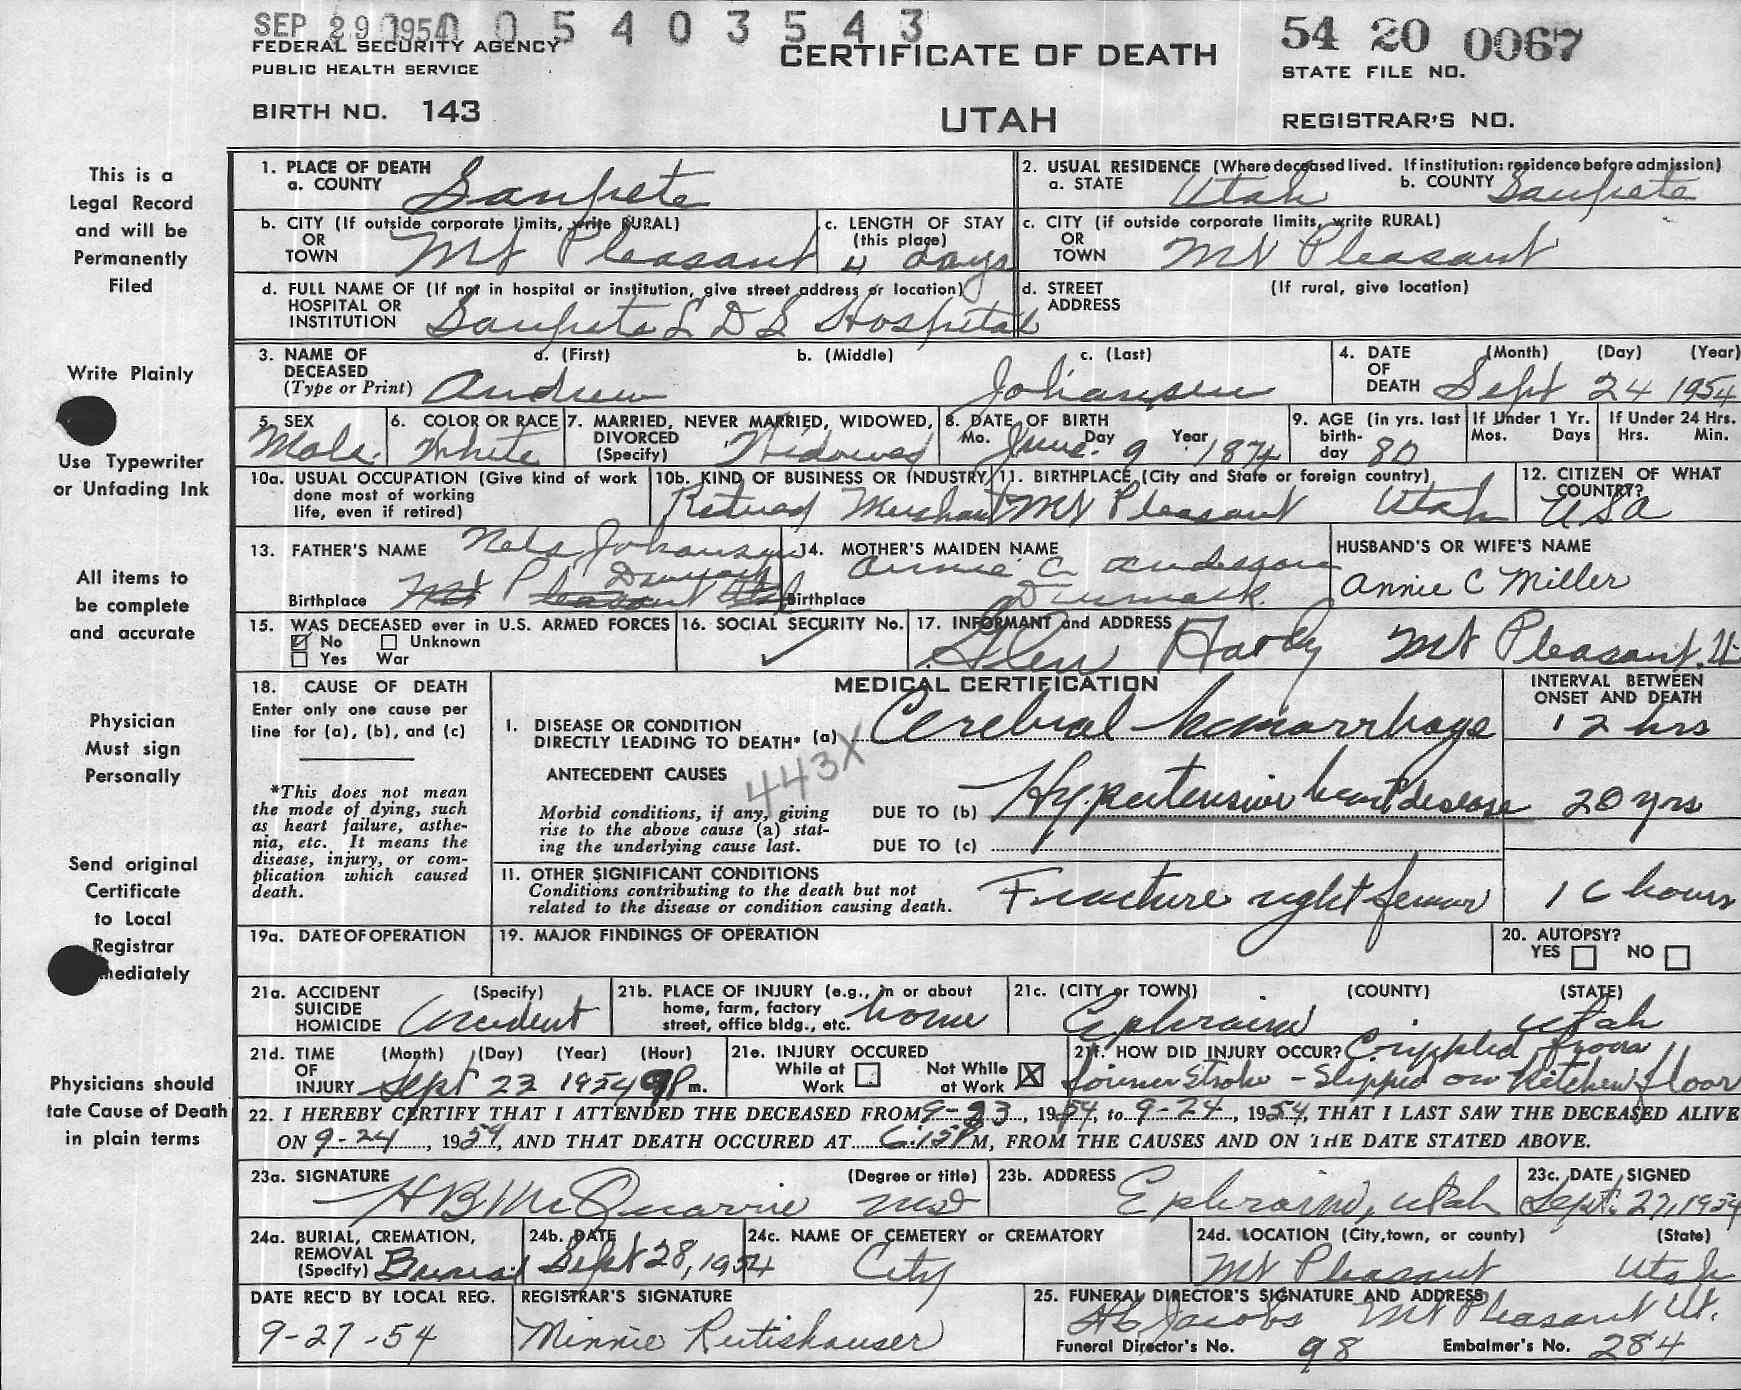 SEP 29 1954 0 0 5 4 0 3 5 4 3
FEDERAL SECURITY AGENCY
PUBLIC HEALTH SERVICE
CERTIFICATE OF DEATH
54 20 0067
STATE FILE NO.
BIRTH NO. 143
UTAH
REGISTRAR'S NO.
This is a
Legal Record
and will be
Permanently
Filed
Write Plainly
Use Typewriter
or Unfading Ink
All items to
be complete
and accurate
Physician
Must sign
Personally
Send original
Certificate
to Local
Registrar
mediately
Physicians should
tate Cause of Death
in plain terms
1. PLACE OF DEATH
a. COUNTY Sanpete
2. USUAL RESIDENCE (Where deceased lived. If institution: residence before admission)
a. STATE Utah b. COUNTY Sanpete
b. CITY (If outside corporate limits, write RURAL)
OR
TOWN Mt Pleasant
c. LENGTH OF STAY
(this place)
4 days
c. CITY (if outside corporate limits, write RURAL)
OR
TOWN Mt Pleasant
d. FULL NAME OF (If not in hospital or institution, give street address or location)
HOSPITAL OR
INSTITUTION Sanpete L D S Hospital
d. STREET (If rural, give location)
ADDRESS
3. NAME OF DECEASED (Type or Print)
a. (First) b. (Middle) c. (Last)
Andrew Johansen
4. DATE OF DEATH (Month) (Day) (Year)
Sept 24 1954
5. SEX
Male
6. COLOR OR RACE
White
7. MARRIED, NEVER MARRIED, WIDOWED,
DIVORCED
(Specify) Widowed
8. DATE OF BIRTH
Mo. June Day 9 Year 1874
9. AGE (in yrs. last
birth-
day 80
If Under 1 Yr.
Mos. Days
If Under 24 Hrs.
Hrs. Min.
10a. USUAL OCCUPATION (Give kind of work
done most of working
life, even if retired)
10b. KIND OF BUSINESS OR INDUSTRY
Retired Merchant
11. BIRTHPLACE (City and State or foreign country)
Mt Pleasant Utah
12. CITIZEN OF WHAT
COUNTRY?
USA
13. FATHER'S NAME Nels Johansen
Denmark
Birthplace Mt Pleasant Utah
14. MOTHER'S MAIDEN NAME
Annie C Anderson
Birthplace Denmark
HUSBAND'S OR WIFE'S NAME
Annie C Miller
15. WAS DECEASED ever in U.S. ARMED FORCES
No Unknown
Yes War
16. SOCIAL SECURITY No.
17. INFORMANT and ADDRESS
Glen Hardy Mt Pleasant, Ut
18. CAUSE OF DEATH
Enter only one cause per
line for (a), (b), and (c)
*This does not mean
the mode of dying, such
as heart failure, asthe-
nia, etc. It means the
disease, injury, or com-
plication which caused
death.
MEDICAL CERTIFICATION
INTERVAL BETWEEN
ONSET AND DEATH
I. DISEASE OR CONDITION
DIRECTLY LEADING TO DEATH* (a) Cerebral hemorrhage 12 hrs
443X
ANTECEDENT CAUSES
Morbid conditions, if any, giving
rise to the above cause (a) stat-
ing the underlying cause last.
DUE TO (b) Hypertensive heart disease 20 yrs
DUE TO (c)
11. OTHER SIGNIFICANT CONDITIONS
Conditions contributing to the death but not
related to the disease or condition causing death.
Fracture right femur hours
19a. DATE OF OPERATION
19. MAJOR FINDINGS OF OPERATION
20. AUTOPSY?
YES NO
21a. ACCIDENT (Specify)
SUICIDE
HOMICIDE Accident
21b. PLACE OF INJURY (e.g., in or about
home, farm, factory
street, office bldg., etc. home
21c. (CITY or TOWN) (COUNTY) (STATE)
Ephraim Utah
21d. TIME (Month) (Day) (Year) (Hour)
OF
INJURY Sept 23 1954 9 P m.
21e. INJURY OCCURED
While at Work Not While at Work X
21f. HOW DID INJURY OCCUR? Crippled from
former stroke - Slipped on kitchen floor
22. I HEREBY CERTIFY THAT I ATTENDED THE DECEASED FROM 9-23, 1954, to 9-24, 1954, THAT I LAST SAW THE DECEASED ALIVE
ON 9-24, 1954, AND THAT DEATH OCCURED AT 6:15 P M, FROM THE CAUSES AND ON THE DATE STATED ABOVE.
23a. SIGNATURE (Degree or title)
H B McQuarrie MD
23b. ADDRESS
Ephraim, Utah
23c. DATE SIGNED
Sept. 27, 1954
24a. BURIAL, CREMATION,
REMOVAL
(Specify) Burial
24b. DATE
Sept 28, 1954
24c. NAME OF CEMETERY or CREMATORY
City
24d. LOCATION (City, town, or county) (State)
Mt Pleasant Utah
DATE REC'D BY LOCAL REG.
9-27-54
REGISTRAR'S SIGNATURE
Minnie Rutishauser
25. FUNERAL DIRECTOR'S SIGNATURE AND ADDRESS
Jacobs Mt Pleasant Ut.
Funeral Director's No. 98 Embalmer's No. 284